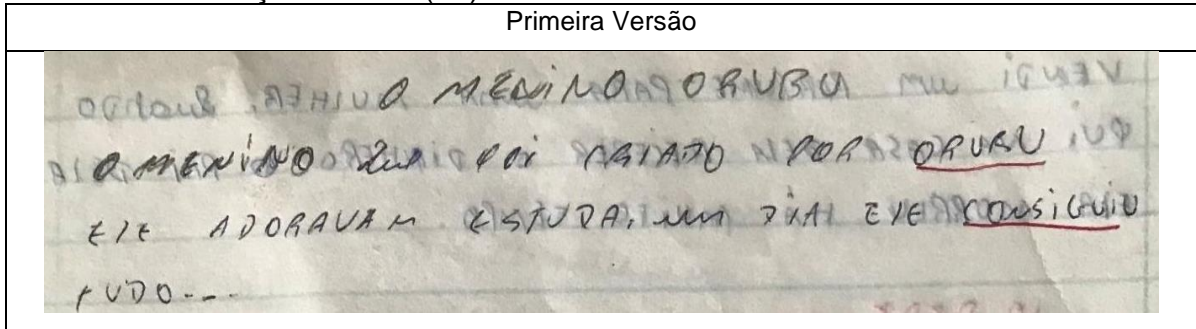 Primeira Versão
O MENINO ORUBU
O MENINO QUE FOI CRIADO POR ORUBU
ELE ADORAVAM ESTUDA, UM DIA ELE CONSIGUIU
TUDO...